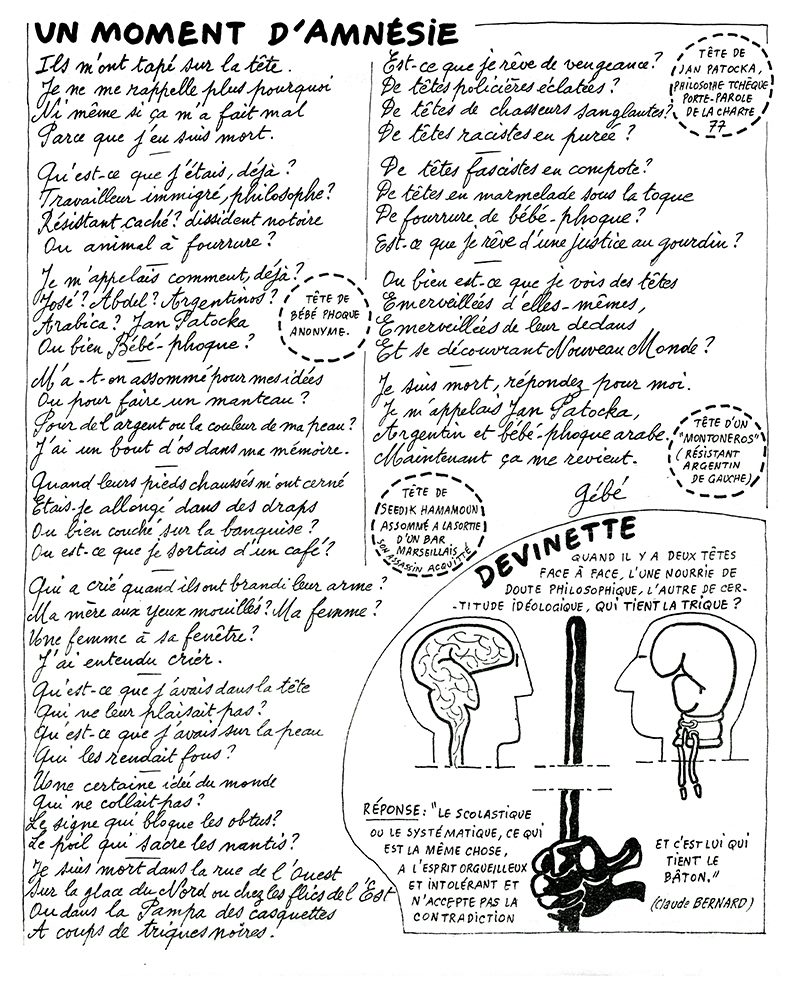 UN MOMENT D'AMNÉSIE
Ils m'ont tapé sur la tête.
Je ne me rappelle plus pourquoi
Ni même si ça m'a fait mal
Parce que j'en suis mort.
Qu'est-ce que j'étais, déjà ?
Travailleur immigré, philosophe ?
Résistant caché ? dissident notoire
Ou animal à fourrure ?
Je m'appelais comment, déjà ?
José ? Abdel ? Argentinos ?
Arabica ? Jan Patocka
Ou bien Bébé-phoque ?
M'a-t-on assommé pour mes idées
Ou pour faire un manteau ?
Pour de l'argent ou la couleur de ma peau ?
J'ai un bout d'os dans ma mémoire.
Quand leurs pieds chaussés m'ont cerné
Étais-je allongé dans des draps
Ou bien couché sur la banquise ?
Ou est-ce que je sortais d'un café ?
Qui a crié quand ils ont brandi leur arme ?
Ma mère aux yeux mouillés ? Ma femme ?
Une femme à sa fenêtre ?
J'ai entendu crier.
Qu'est-ce que j'avais dans la tête
Qui ne leur plaisait pas ?
Qu'est-ce que j'avais sur la peau
Qui les rendait fous ?
Une certaine idée du monde
Qui ne collait pas ?
Le signe qui bloque les obtus ?
Le poil qui sacre les nantis ?
Je suis mort dans la rue de l'Ouest
Sur la glace du Nord ou chez les flics de l'Est
Ou dans la Pampa des casquettes
A coups de triques noires.
TÊTE DE
BÉBÉ PHOQUE
ANONYME.
Est-ce que je rêve de vengeance ?
De têtes policières éclatées ?
De têtes de chasseurs sanglantes ?
De têtes racistes en purée ?
De têtes fascistes en compote ?
De têtes en marmelade sous la toque
De fourrure de bébé-phoque ?
Est-ce que je rêve d'une Justice au gourdin ?
Ou bien est-ce que je vois des têtes
Emerveillées d'elles-mêmes,
Emerveillées de leur dedans
Et se découvrant Nouveau Monde ?
Je suis mort, répondez pour moi.
Je m'appelais Jan Patocka,
Argentin et bébé-phoque arabe.
Maintenant ça me revient.
Gébé
TÊTE DE
JAN PATOCKA,
PHILOSOPHE TCHÈQUE
PORTE-PAROLE
DE LA CHARTE
77
TÊTE D'UN
"MONTONEROS"
(RÉSISTANT
ARGENTIN
DE GAUCHE)
TÊTE DE
SEEDIK HAMAMOUN
ASSOMMÉ A LA SORTIE
D'UN BAR
MARSEILLAIS
SON ASSASSIN ACQUITTÉ
DEVINETTE
QUAND IL Y A DEUX TÊTES
FACE À FACE, L'UNE NOURRIE DE
DOUTE PHILOSOPHIQUE, L'AUTRE DE CER-
-TITUDE IDÉOLOGIQUE, QUI TIENT LA TRIQUE ?
RÉPONSE : "LE SCOLASTIQUE
OU LE SYSTÉMATIQUE, CE QUI
EST LA MÊME CHOSE,
A L'ESPRIT ORGUEILLEUX
ET INTOLÉRANT ET
N'ACCEPTE PAS LA
CONTRADICTION
ET C'EST LUI QUI
TIENT LE
BÂTON."
(Claude BERNARD)